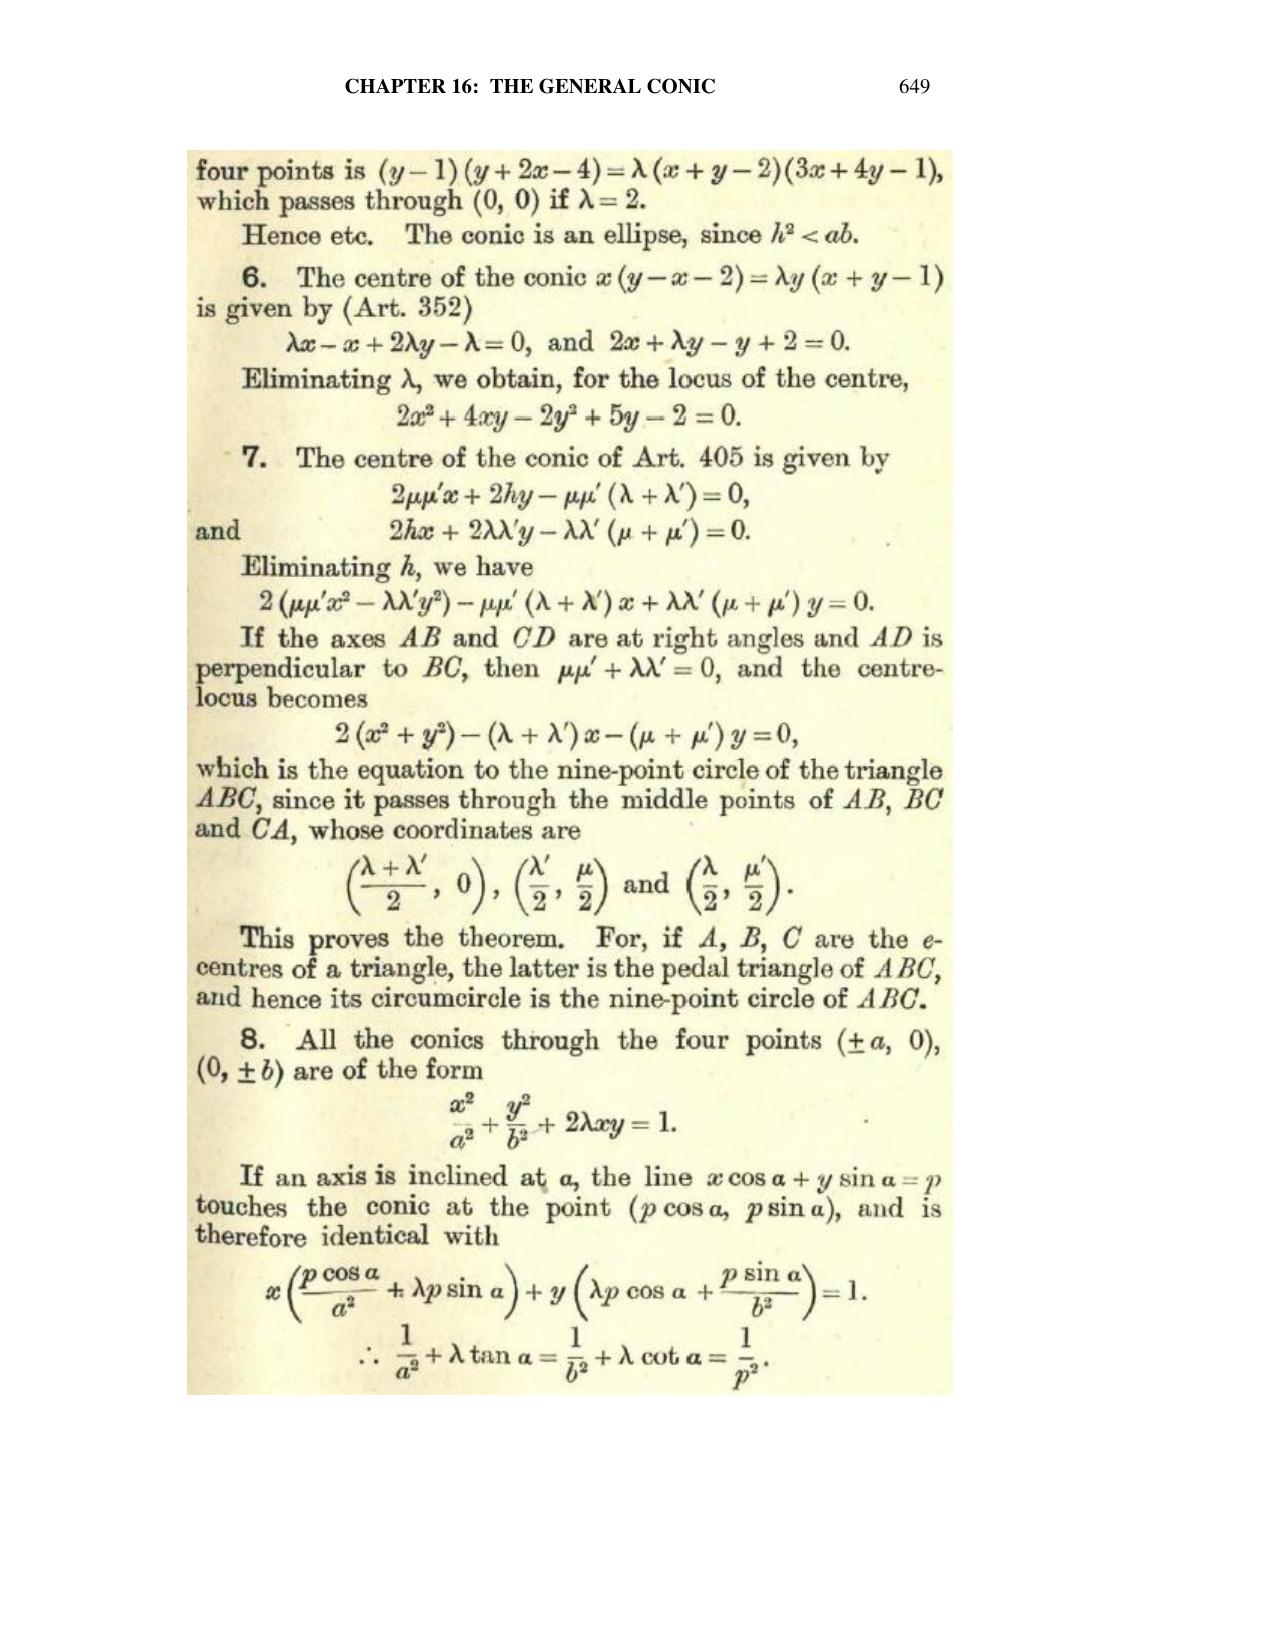 CHAPTER 16: THE GENERAL CONIC 649
four points is (y − 1) (y + 2x − 4) = λ (x + y − 2)(3x + 4y − 1),
which passes through (0, 0) if λ = 2.
Hence etc. The conic is an ellipse, since h² < ab.
6. The centre of the conic x (y − x − 2) = λy (x + y − 1)
is given by (Art. 352)
λx − x + 2λy − λ = 0, and 2x + λy − y + 2 = 0.
Eliminating λ, we obtain, for the locus of the centre,
2x² + 4xy − 2y² + 5y − 2 = 0.
7. The centre of the conic of Art. 405 is given by
2μμ′x + 2hy − μμ′ (λ + λ′) = 0,
and 2hx + 2λλ′y − λλ′ (μ + μ′) = 0.
Eliminating h, we have
2 (μμ′x² − λλ′y²) − μμ′ (λ + λ′) x + λλ′ (μ + μ′) y = 0.
If the axes AB and CD are at right angles and AD is
perpendicular to BC, then μμ′ + λλ′ = 0, and the centre-
locus becomes
2 (x² + y²) − (λ + λ′) x − (μ + μ′) y = 0,
which is the equation to the nine-point circle of the triangle
ABC, since it passes through the middle points of AB, BC
and CA, whose coordinates are
((λ + λ′)/2, 0), (λ′/2, μ/2) and (λ/2, μ′/2).
This proves the theorem. For, if A, B, C are the e-
centres of a triangle, the latter is the pedal triangle of ABC,
and hence its circumcircle is the nine-point circle of ABC.
8. All the conics through the four points (± a, 0),
(0, ± b) are of the form
x²/a² + y²/b² + 2λxy = 1.
If an axis is inclined at α, the line x cos α + y sin α = p
touches the conic at the point (p cos α, p sin α), and is
therefore identical with
x (p cos α/a² + λp sin α) + y (λp cos α + p sin α/b²) = 1.
∴ 1/a² + λ tan α = 1/b² + λ cot α = 1/p².